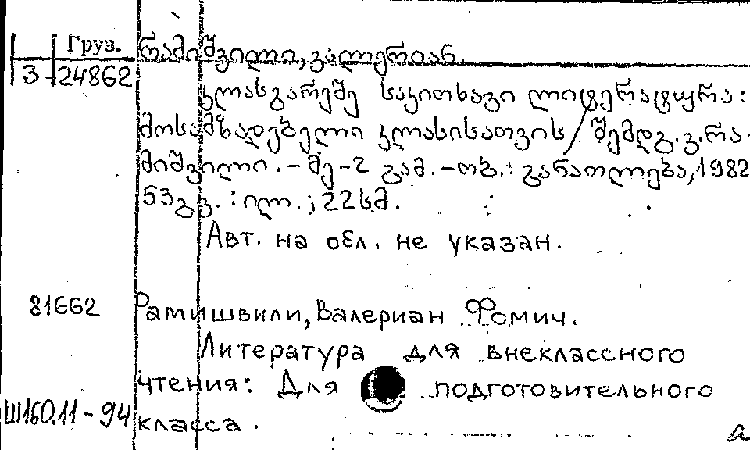 Груз. რამიშვილი, ვალერიან.
3-24862
კლასგარეშე საკითხავი ლიტერატურა:
მოსამზადებელი კლასისათვის / შემდგ. ვ. რა-
მიშვილი. - მე-2 გამ. - თბ.: განათლება, 1982
53გვ. : ილ. ; 22სმ.
Авт. на обл. не указан.
81662 Рамишвили, Валериан Фомич.
Литература для внеклассного
чтения: Для подготовительного
Ш160.11-94 класса.